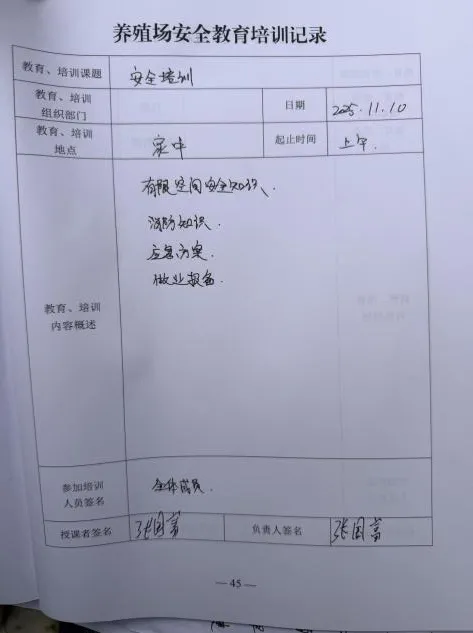 养殖场安全教育培训记录
教育、培训课题 安全培训
教育、培训
组织部门
日期 2025.11.10
教育、培训
地点
家中
起止时间 上午.
有限空间安全知识、
消防知识.
应急方案.
做业报备.
教育、培训
内容概述
参加培训
人员签名
全体成员.
授课者签名 张国富 负责人签名 张国富
— 45 —